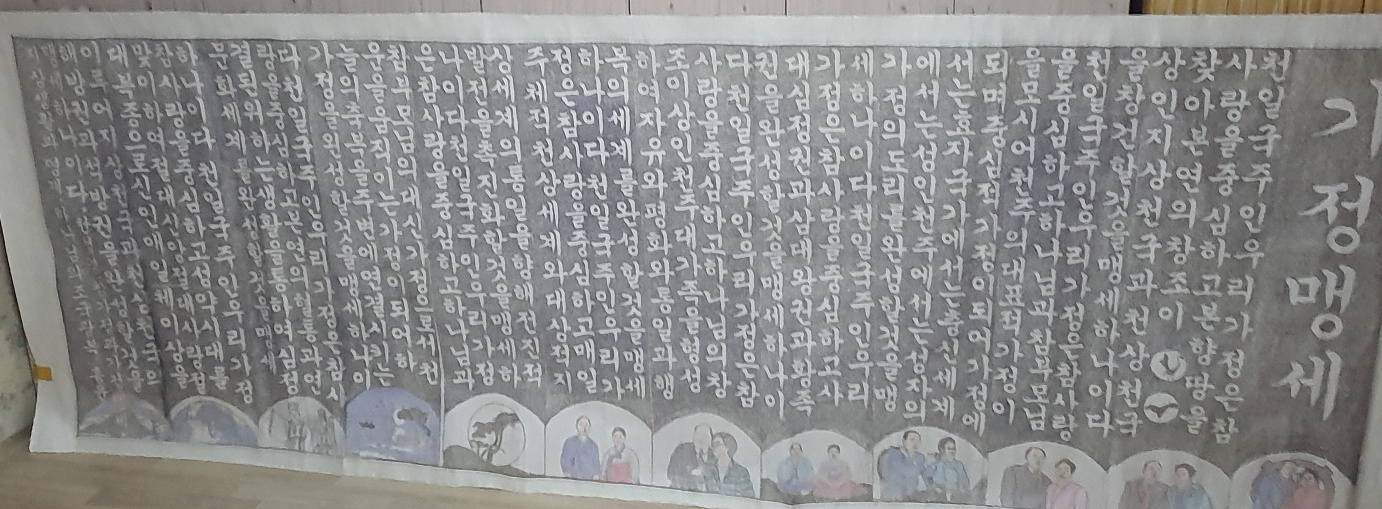 가정맹세
천일국주인우리가정은참
사랑을중심하고본향땅을
찾아본연의창조이
상인지상천국과천상천국
을창건할것을맹세하나이다
천일국주인우리가정은참사랑
을중심하고하나님과참부모님
을모시어천주의대표적가정이
되며중심적가정이되어가정에
서는효자국가에선는충신세계
에서는성인천주에서는성자의
가정의도리를완성할것을맹
세하나이다천일국주인우리
가정은참사랑을중심하고사
대심정권과삼대왕권과황족
권을완성할것을맹세하나이
다천일국주인우리가정은참
사랑을중심하고하나님의창
조이상인천주대가족을형성
하여자유와평화와통일과행
복의세계를완성할것을맹세
하나이다천일국주인우리가
정은참사랑을중심하고매일
주체적천상세계와대상적지
상세계의통일을향해전진적
발전을촉진화할것을맹세하
나이다천일국주인우리가정
은참사랑을중심하고하나님과
참부모님의대신가정으로서천
운을움직이는가정이되어하
늘의축복을주변에연결시키는
가정을완성할것을맹세하나이
다천일국주인우리가정은참사
랑을중심하고본연의혈통과연
결된위하는생활을통하여심정
문화세계를완성할것을맹세
하나이다천일국주인우리가정
참사랑을중심하고섭악시대를
맞이하여절대신앙절대사랑절
대복종으로신인애일체이상을
이루어지상천국과천상천국의
해방권과석방권을완성할것을
맹세하나이다